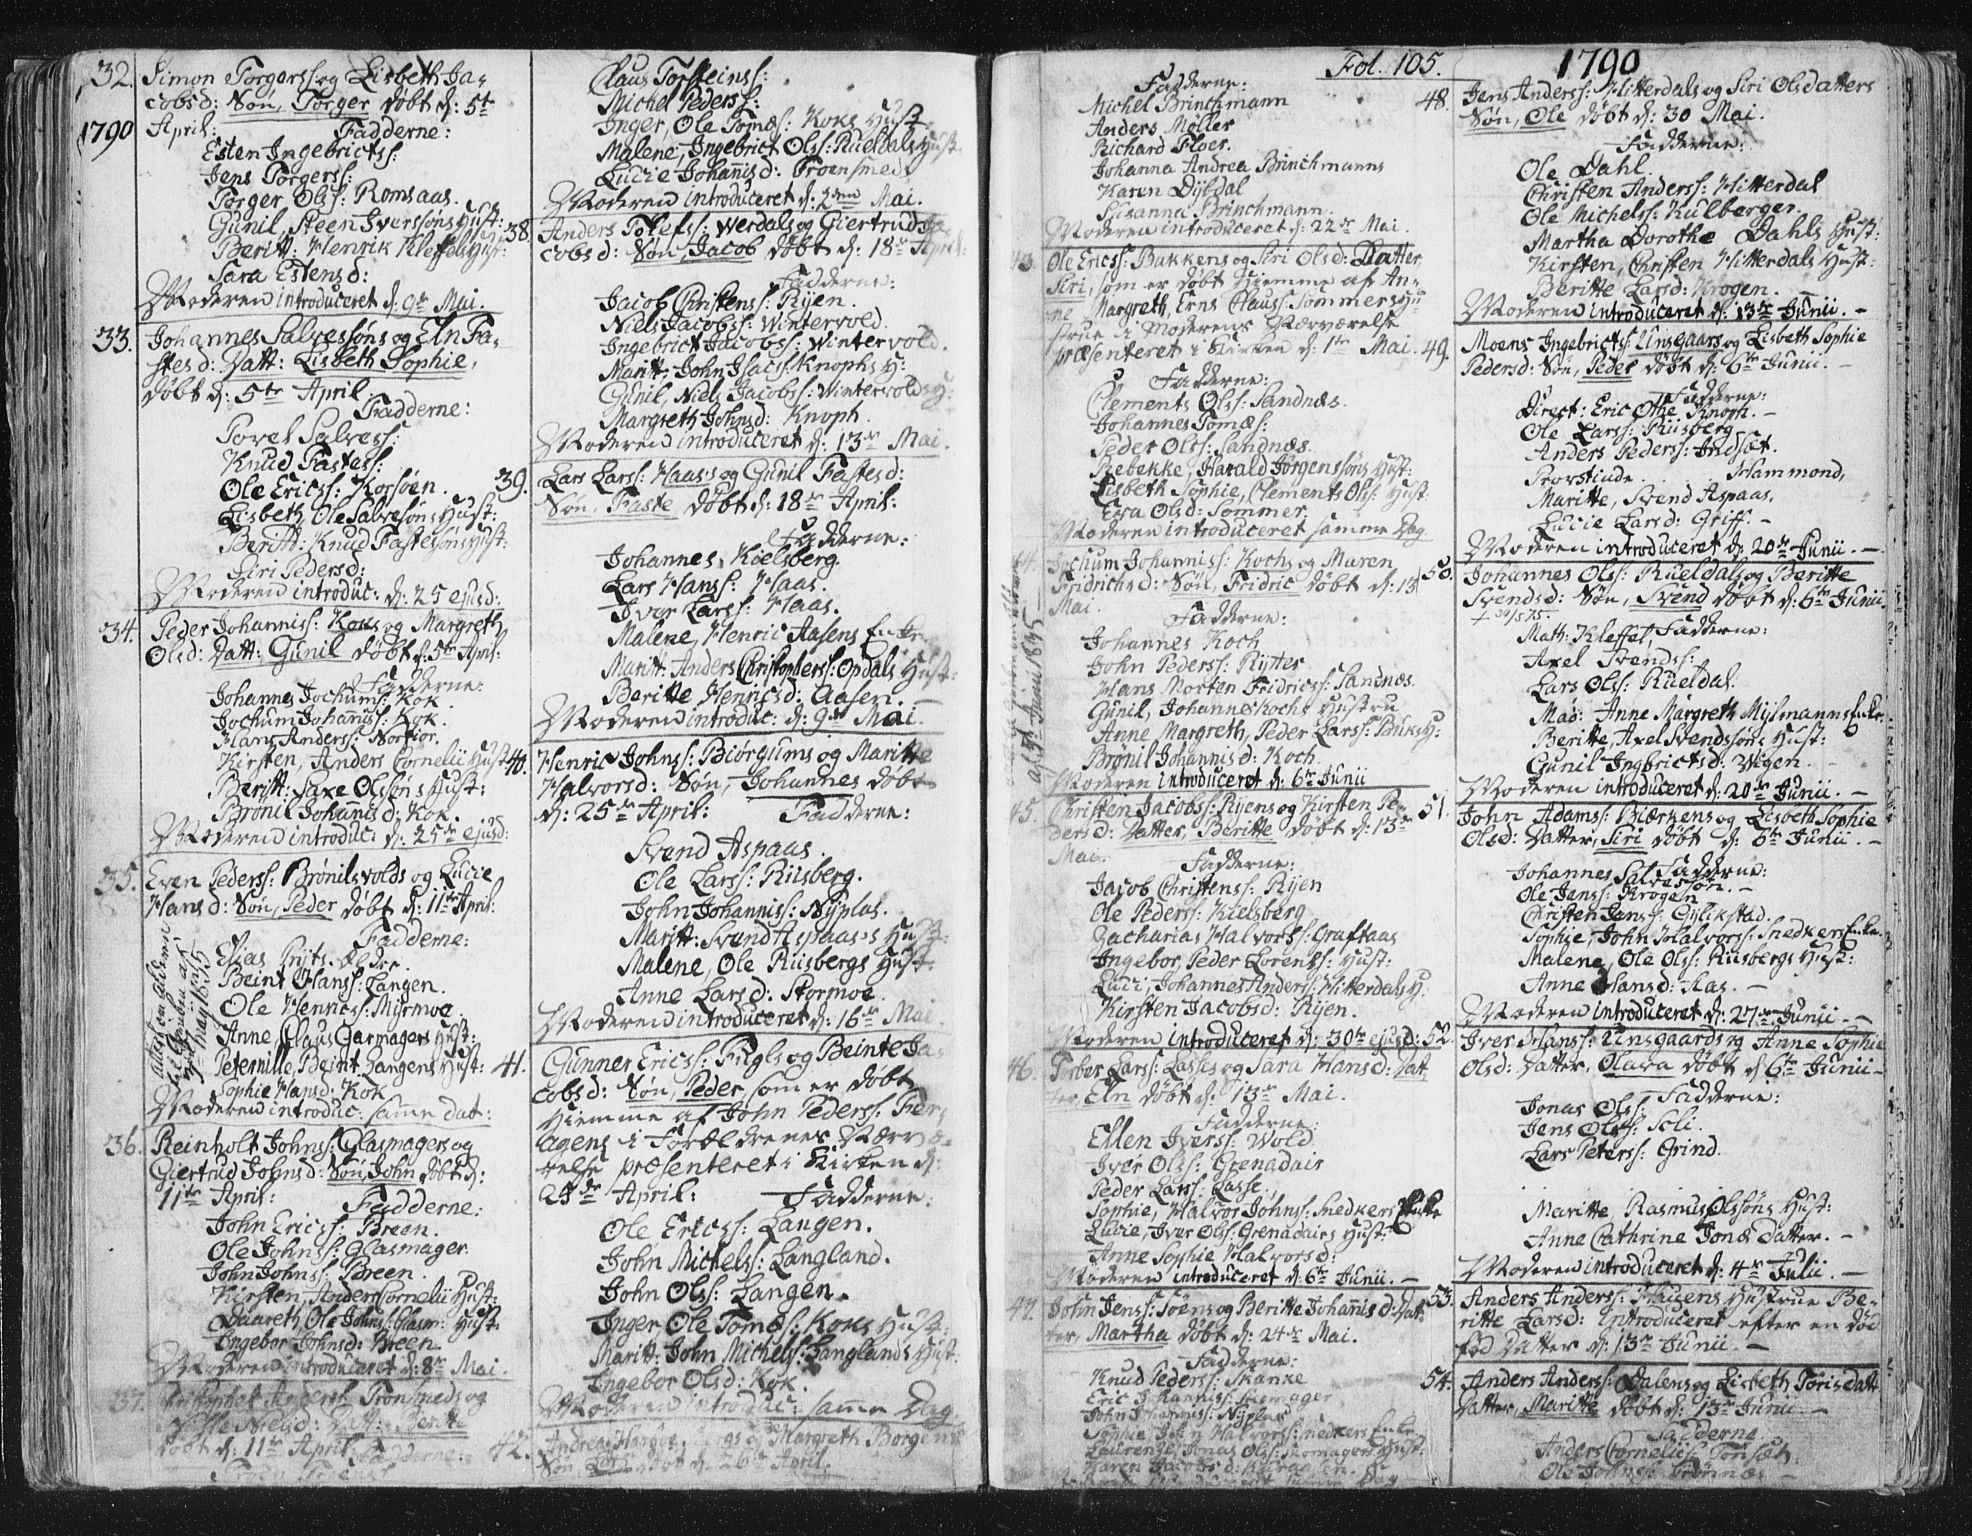 32. Simon Torgerss: og Lisbeth Ja-
cobsd: Søn, Torger døbt d: 5te
1790
April: Fadderne:
Esten Ingebrictss:
Jens Torgerss:
Torger Olss: Romsaas.
Gunil, Steen Iverssøns Hust:
Beritt: Henrik Kleffels Hust:
Sara Estensd:
Moderen introduceret d: 9de Mai.
33. Johannes Salvessøns og Eln Fa-
stesd: Datt: Lisbeth Sophie,
døbt d: 5te April
Fadderne:
Povel Salvess:
Knud Fastess:
Ole Ericss: Korsøen.
Lisbeth, Ole Salvesøns Hust:
Beritt: Knud Fastesøns Hust:
Siri Pedersd:
Moderen introduc: d: 25 ejusd:
34. Peder Johanniss: Koks og Margreth
Olsd: Datt: Gunil døbt d: 5te April:
Fadderne:
Johannes Jochums: Kok.
Jochum Johaniss: Kok.
Hans Anderss: Nortior.
Kirsten, Anders Cornelii Hust:
Beritt: Saxe Olsøns Hust:
Brønil Johanisd: Kok.
Moderen introduc: d: 25de ejusd:
35. Even Pederss: Brønilsvolds og Lucie
Hansd: Søn, Peder døbt d: 11te April:
Fadderne:
Elias Prÿts. Ældre.
Beint Hanss: Langen.
Ole Henricss: Mÿrmoe.
Anne, Claus Garmagers Hust:
Peternille, Beint Langens Hust:
Sophie Hansd: Kok
Moderen introduc: samme dat:
36. Reinholt Johnss: Glasmagers og
Giertrud Johnsd: Søn, John døbt d:
11te April: Fadderne:
John Ericss: Breen.
Ole Johnss: Glasmager.
John Johnss: Breen.
Kirsten, Anders Cornelii Hust:
Ingebor Johnsd: Breen
Moderen introduceret d: 8de Mai.
37.
døbt d: 11te April: Fadderne:
Claus Torsteinss:
Michel Pederss:
Inger, Ole Tomæs: Koks Hust
Malene, Ingebrict Olss: Rueldals Hust:
Lucie Johanisd: Troensmed.
Moderen introduceret d: 2den Mai.
38. Anders Tolefss: Werdals og Giertrud Ja-
cobsd: Søn, Jacob døbt d: 18de April:
Fadderne:
Jacob Christenss: Rÿen.
Niels Jacobss: Wintervold.
Ingebrict Jacobss: Wintervold.
Maritt, John Isacss: Knophs H:
Gunil, Niels Jacobss: Wintervolds H:
Margreth Johnsd: Knoph.
Moderen introduceret d: 13de Mai.
39. Lars Larss: Haas's og Gunil Fastesd:
Søn, Faste døbt d: 18de April:
Fadderne:
Johannes, Koelsberg.
Lars Hanss: Haas.
Iver Larss: Haas.
Malene, Henric Aasens Enke.
Maritt: Anders Christopherss: Opdals Hust:
Beritte Henricsd: Aasen.
Moderen introduc: d: 9de Mai.
40. Henric Johnss: Biørgums og Maritte
Halvorsd: Søn, Johannes døbt
d: 25de April: Fadderne:
Svend Aspaas.
Ole Larss: Riisberg.
John Johanniss: Nÿplas.
Maritt: Svend Aspaas's Hust:
Malene, Ole Riisbergs Hust:
Anne Larsd: Stormoe.
Moderen introduceret d: 16de Mai.
41. Gunner Ericss: Fugls og Beinte Ja-
cobsd: Søn, Peder som er døbt
Hiemme af John Pederss: Fer-
agens i Forældrenes Nærvæ-
relse præsenteret i Kirken d:
25de April: Fadderne:
Ole Ericss: Langen.
John Michelss: Langland.
John Olss: Langen.
Inger, Ole Tomæs: Koks Hust:
Maritt: John Michelss: Langlands Hust:
Ingebor Olsd: Kok.
Moderen introduc: samme Dag
42. Margreth Borgens
Søn, døbt d: 26de April.
Fol. 105. 1790
Fadderne:
Michel Brinchmann
Anders Møller
Richard Floer.
Johanna Andrea Brinchmanns
Karen Dÿbdal
Susanna Brinchmann.
Moderen introduceret d: 22de Mai.
43. Ole Ericss: Bakkens og Siri Olsd: Datter
Siri, som er døbt Hiemme af An-
ne Margreth, Erns Clauss: Sommers Hu-
strue i Moderens Nærværelse
præsenteret i Kirken d: 1te Mai.
Fadderne:
Clements Olss: Sandnæs.
Johannes Tomæs:
Peder Olss: Sandnæs.
Rebekke, Harald Jørgenssøns Hust:
Lisbeth Sophie, Clements Olss: Hust
Eva Olsd: Sommer.
Moderen introduceret samme Dag
44. Jochum Johanniss: Kochs og Maren
Fridrichsd: Søn, Fridric døbt d: 13
Mai. Fadderne:
Johannes Koch
John Pederss: Rÿtter
Hans Morten Fridricss: Sandnæs.
Gunil, Johannes Kochs Hustru
Anne Margreth, Peder Larss: Buks H:
Brønil Johannisd: Koch.
Moderen introduceret d: 6te Junii
45. Christen Jacobss: Rÿens og Kirsten Pe-
dersd: Datter, Beritte døbt d: 13de
Mai. Fadderne:
Jacob Christenss: Rÿen
Ole Pederss: Kielsberg
Zacharias Halvorss: Graftaas
Ingebor, Peder Lorentss: Hust:
Luci, Johannes Anderss: Hitterdals H:
Kirsten Jacobsd: Rÿen.
Moderen introduceret d: 30te ejusd:
46. Torber Larss: Lasses og Sara Hansd: Dat-
ter, Eln døbt d: 13de Mai.
Fadderne:
Ellen Iverss: Wold.
Iver Olss: Grenadair
Peder Larss: Lasse.
Sophie, Halvor Johnss: Snedkers
Lucie, Iver Olss: Grenadairs Hust:
Anne Sophie Halvorsd:
Moderen introduceret d: 6te Junii.
47. John Jenss: Soens og Beritte Johannisd: Dat-
ter, Martha døbt d: 24de Mai.
Fadderne:
Knud Pederss: Skanke
Eric Johanniss: Skomager
John Johanniss: Nÿplas
Sophie, John Halvorss: Snedkers Enke
Laurense, Jonas Olss: Skomagers Hust:
Karen Jacobsd:
48. Jens Anderss: Hitterdals og Siri Olsdatters
Søn, Ole døbt d: 30 Mai.
Fadderne:
Ole Dahl.
Christen Anderss: Hitterdal
Ole Michelss: Kulberger.
Martha Dorothe Dahls Hust:
Kirsten, Christen Hitterdals Hust:
Beritte Larsd: Krogen.
Moderen introduceret d: 13de Junii.
49. Moens Ingebrictss: Unsgaars og Lisbeth Sophie
Pedersd: Søn, Peder døbt d: 6te Junii.
Fadderne:
Direct: Eric Othe Knoph.
Ole Larss: Riisberg
Anders Pederss: Indset.
Provstinde Hammond,
Maritte, Svend Aspaas.
Lucie Larsd: Griff.
Moderen introduceret d: 20de Junii.
50. Johannes Olss: Rueldals og Beritte
Svendsd: Søn, Svend døbt d: 6te Junii
Fadderne:
Math: Kleffel,
Axel Svendss:
Lars Olss: Rueldal.
Mad: Anne Margreth Mÿlmanns Enke.
Beritte, Axel Svendssøns Hust:
Gunil Ingbrictsd: Wigen.
Moderen introduceret d: 20de Junii.
51. John Adams: Biærkens og Lisbeth Sophie
Olsd: Datter, Siri døbt d: 6te Junii.
Fadderne:
Johannes Salvessøn.
Ole Jenss: Krogen
Christen Janss: Gÿlikstad.
Sophie, John Halvorss: Snedkers Enke.
Malene, Ole Olss: Riisbergs Hust:
Anne Hansd: Aas.
Moderen introduceret d: 27de Junii.
52. Iver Hanss: Unsgaards og Anne Sophie
Olsd: Datter, Olava døbt d: 6te Junii
Fadderne:
Jonas Olss:
Jens Olss: Soli.
Lars Peterss: Grind.
Maritte, Rasmus Olssøns Hust:
Anne Cathrine Jonæ Datter.
Moderen introduceret d: 4de Julii.
53. Anders Anderss: Haugens Hustrue Be-
ritte Larsd: introduceret efter en død
fød Datter d: 13de Junii.
54. Anders Anderss: Dalens og Lisbeth Torisdatt
Datter, Maritte døbt d: 13de Junii.
Fadderne.
Anders Cornelii Tønset
Ole Johnss: Brønnæs